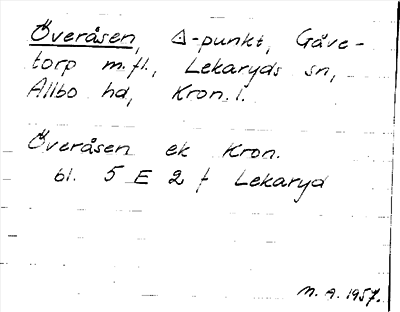 Överåsen, △-punkt, Gåve-
torp m.fl., Lekaryds sn,
Allbo hd, Kron. l.
Överåsen ek Kron.
bl. 5 E 2 f Lekaryd
N. A. 1957.